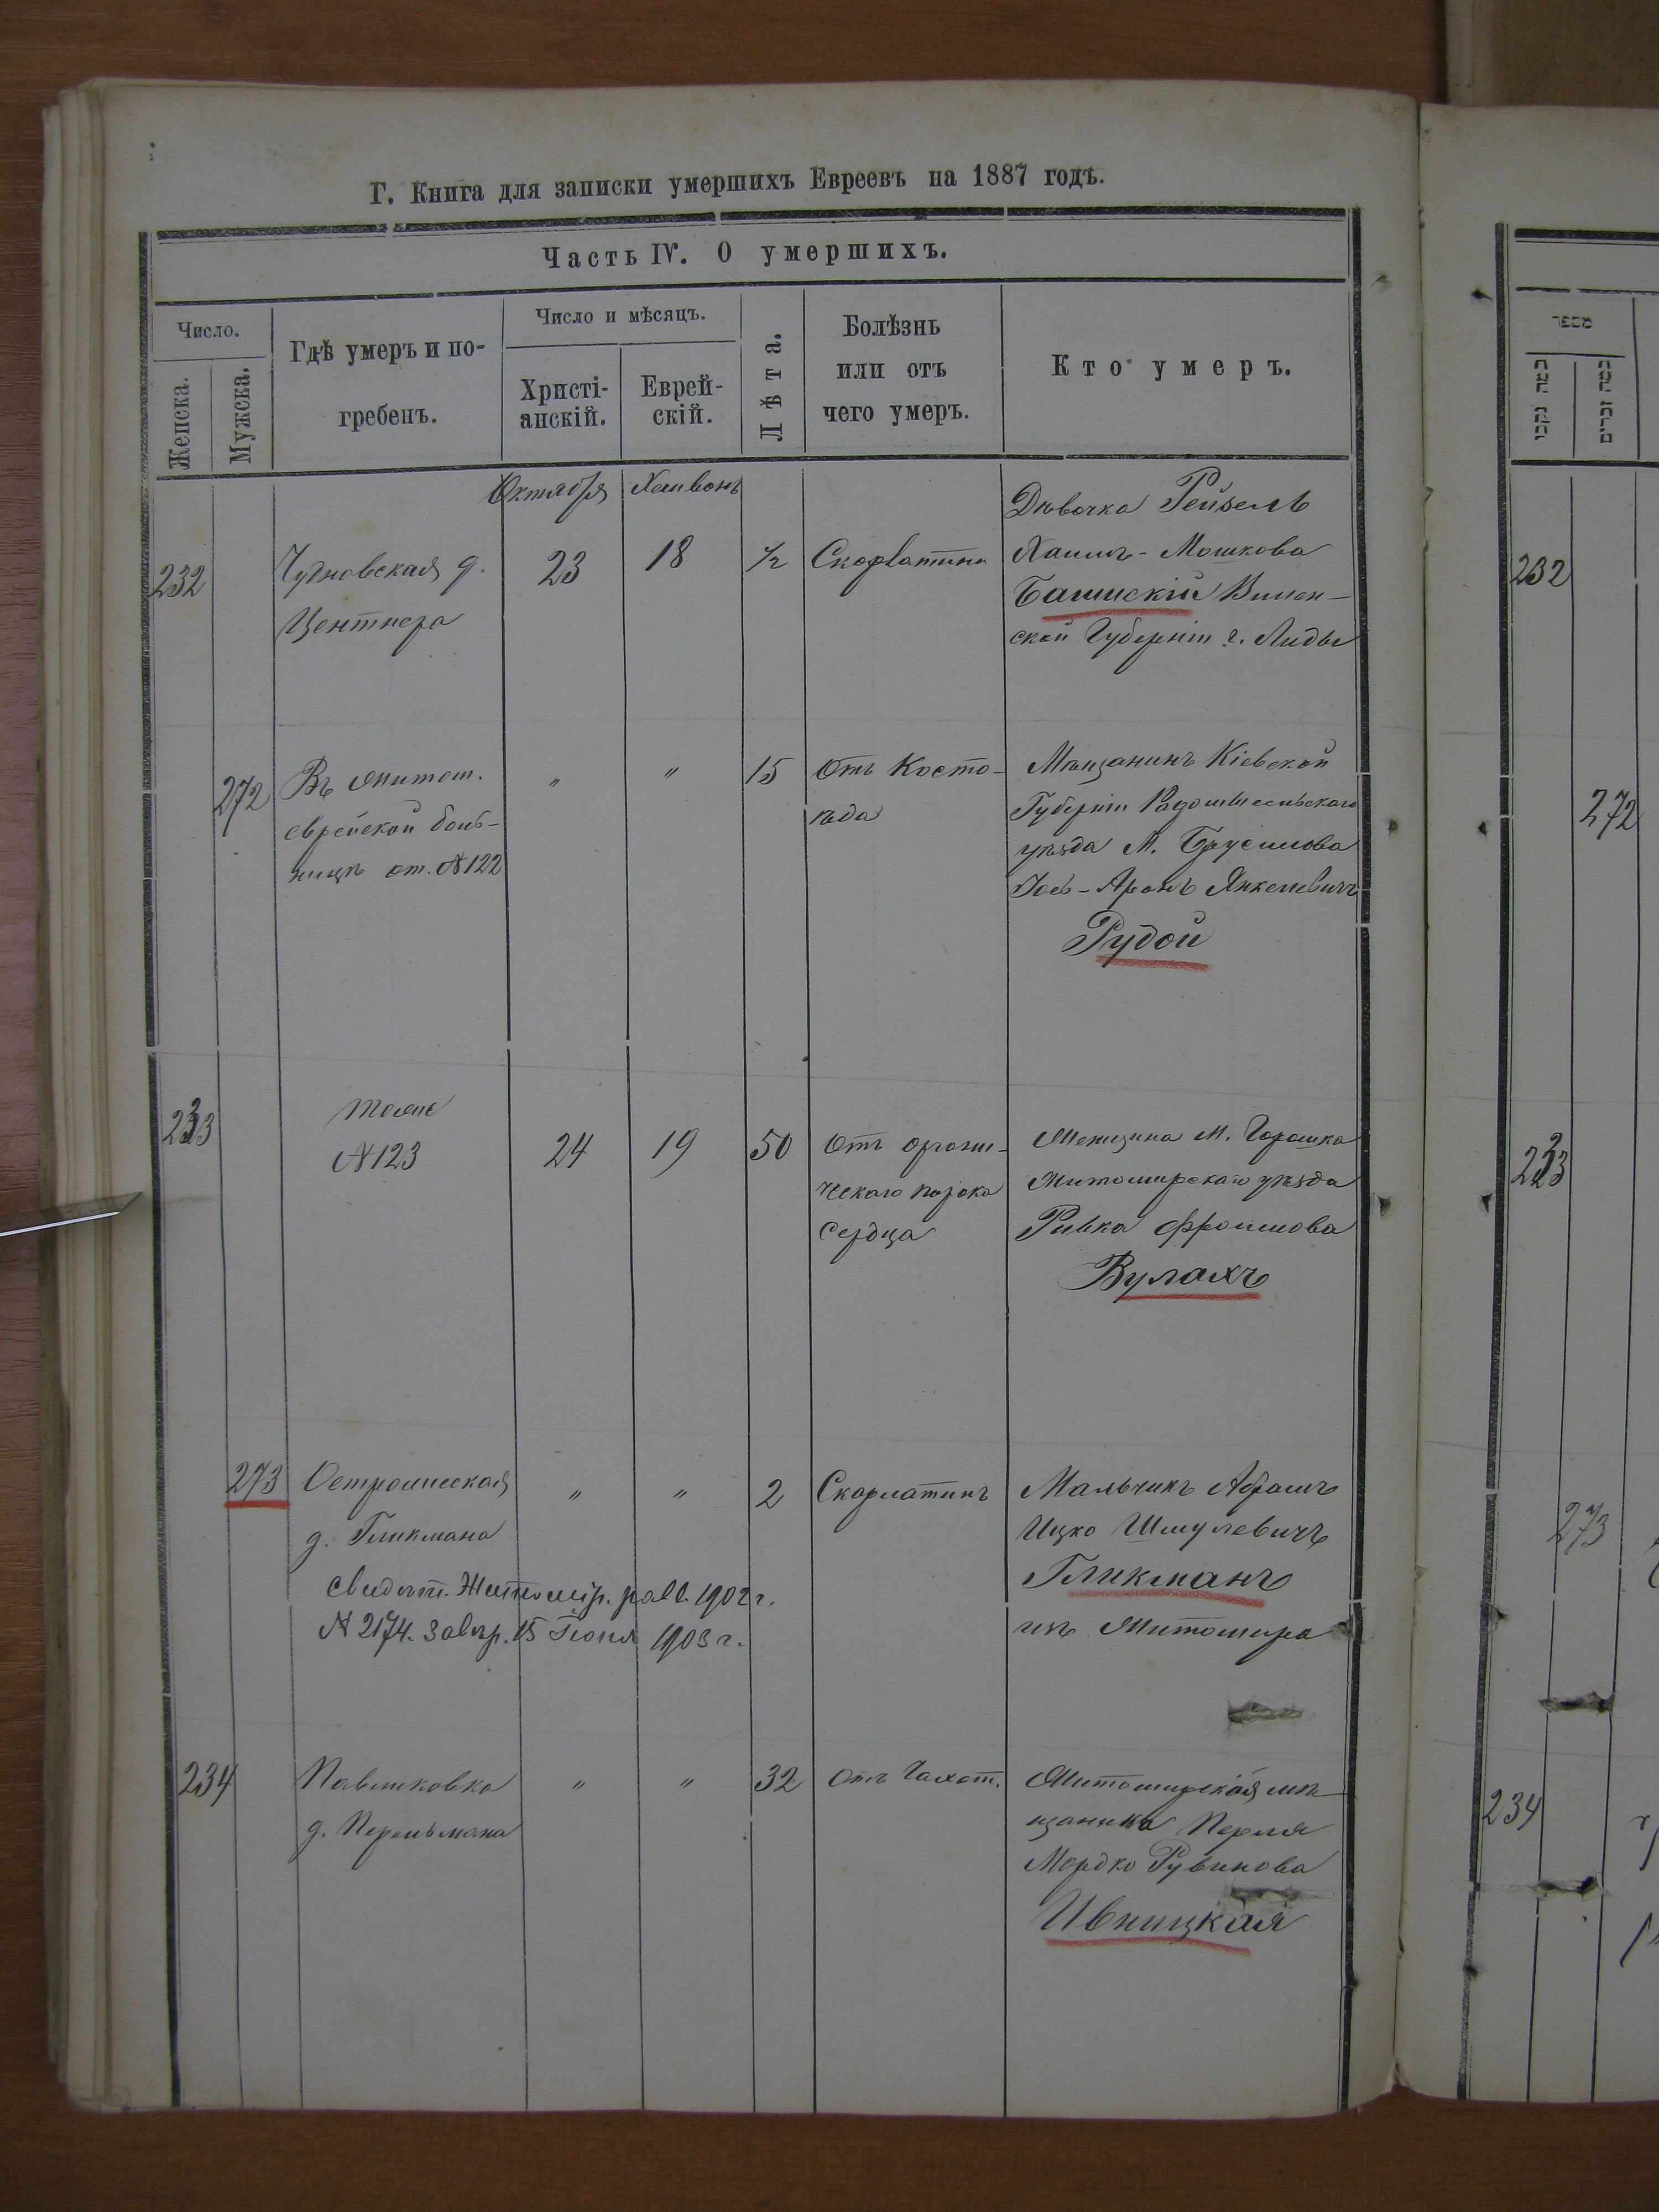 Г. Книга для записки умершихъ Евреевъ на 1887 годъ.
Часть IV. О умершихъ.
Число.
Женска.
Мужска.
Гдѣ умеръ и по-
гребенъ.
Число и мѣсяцъ.
Христі-
анскій.
Еврей-
скій.
Лѣта.
Болѣзнь
или отъ
чего умеръ.
Кто умеръ.
Октября
Хешвонъ
232
Чудновская д.
Центнера
23
18
1/2
Скорлатина
Дѣвочка Рейзель
Хаимъ-Мошкова
Вилен-
ской Губерніи г. Лиды
272
Въ житом.
еврейской боль-
ницѣ от. №122
"
"
15
Отъ Косто-
ѣда
Мѣщанинъ Кіевской
Губерніи Радомысльскаго
уѣзда М. Брусилова
Іось-Аронъ Янкелевичъ
Рудой
233
тоже
№123
24
19
50
Отъ органи-
ческаго порока
сердца
Женщина М. Горошка
Житомирскаго уѣзда
Ривка Фроимова
Вулахъ
273
д. Гликмана
"
"
2
Скорлатинъ
Мальчикъ Абрамъ
Ицко Шмулевичъ
Гликманъ
изъ Житомира
Свидѣт. Житомір. равв. 1902 г.
№ 2174. Завѣр. 15 Іюня 1903 г.
234
Павликовка
д. Перельмана
"
"
32
Отъ Чахот.
Житомирская мѣ-
щанка Перля
Мордко Рувинова
Ивницкая
מספר
232
272
233
273
234